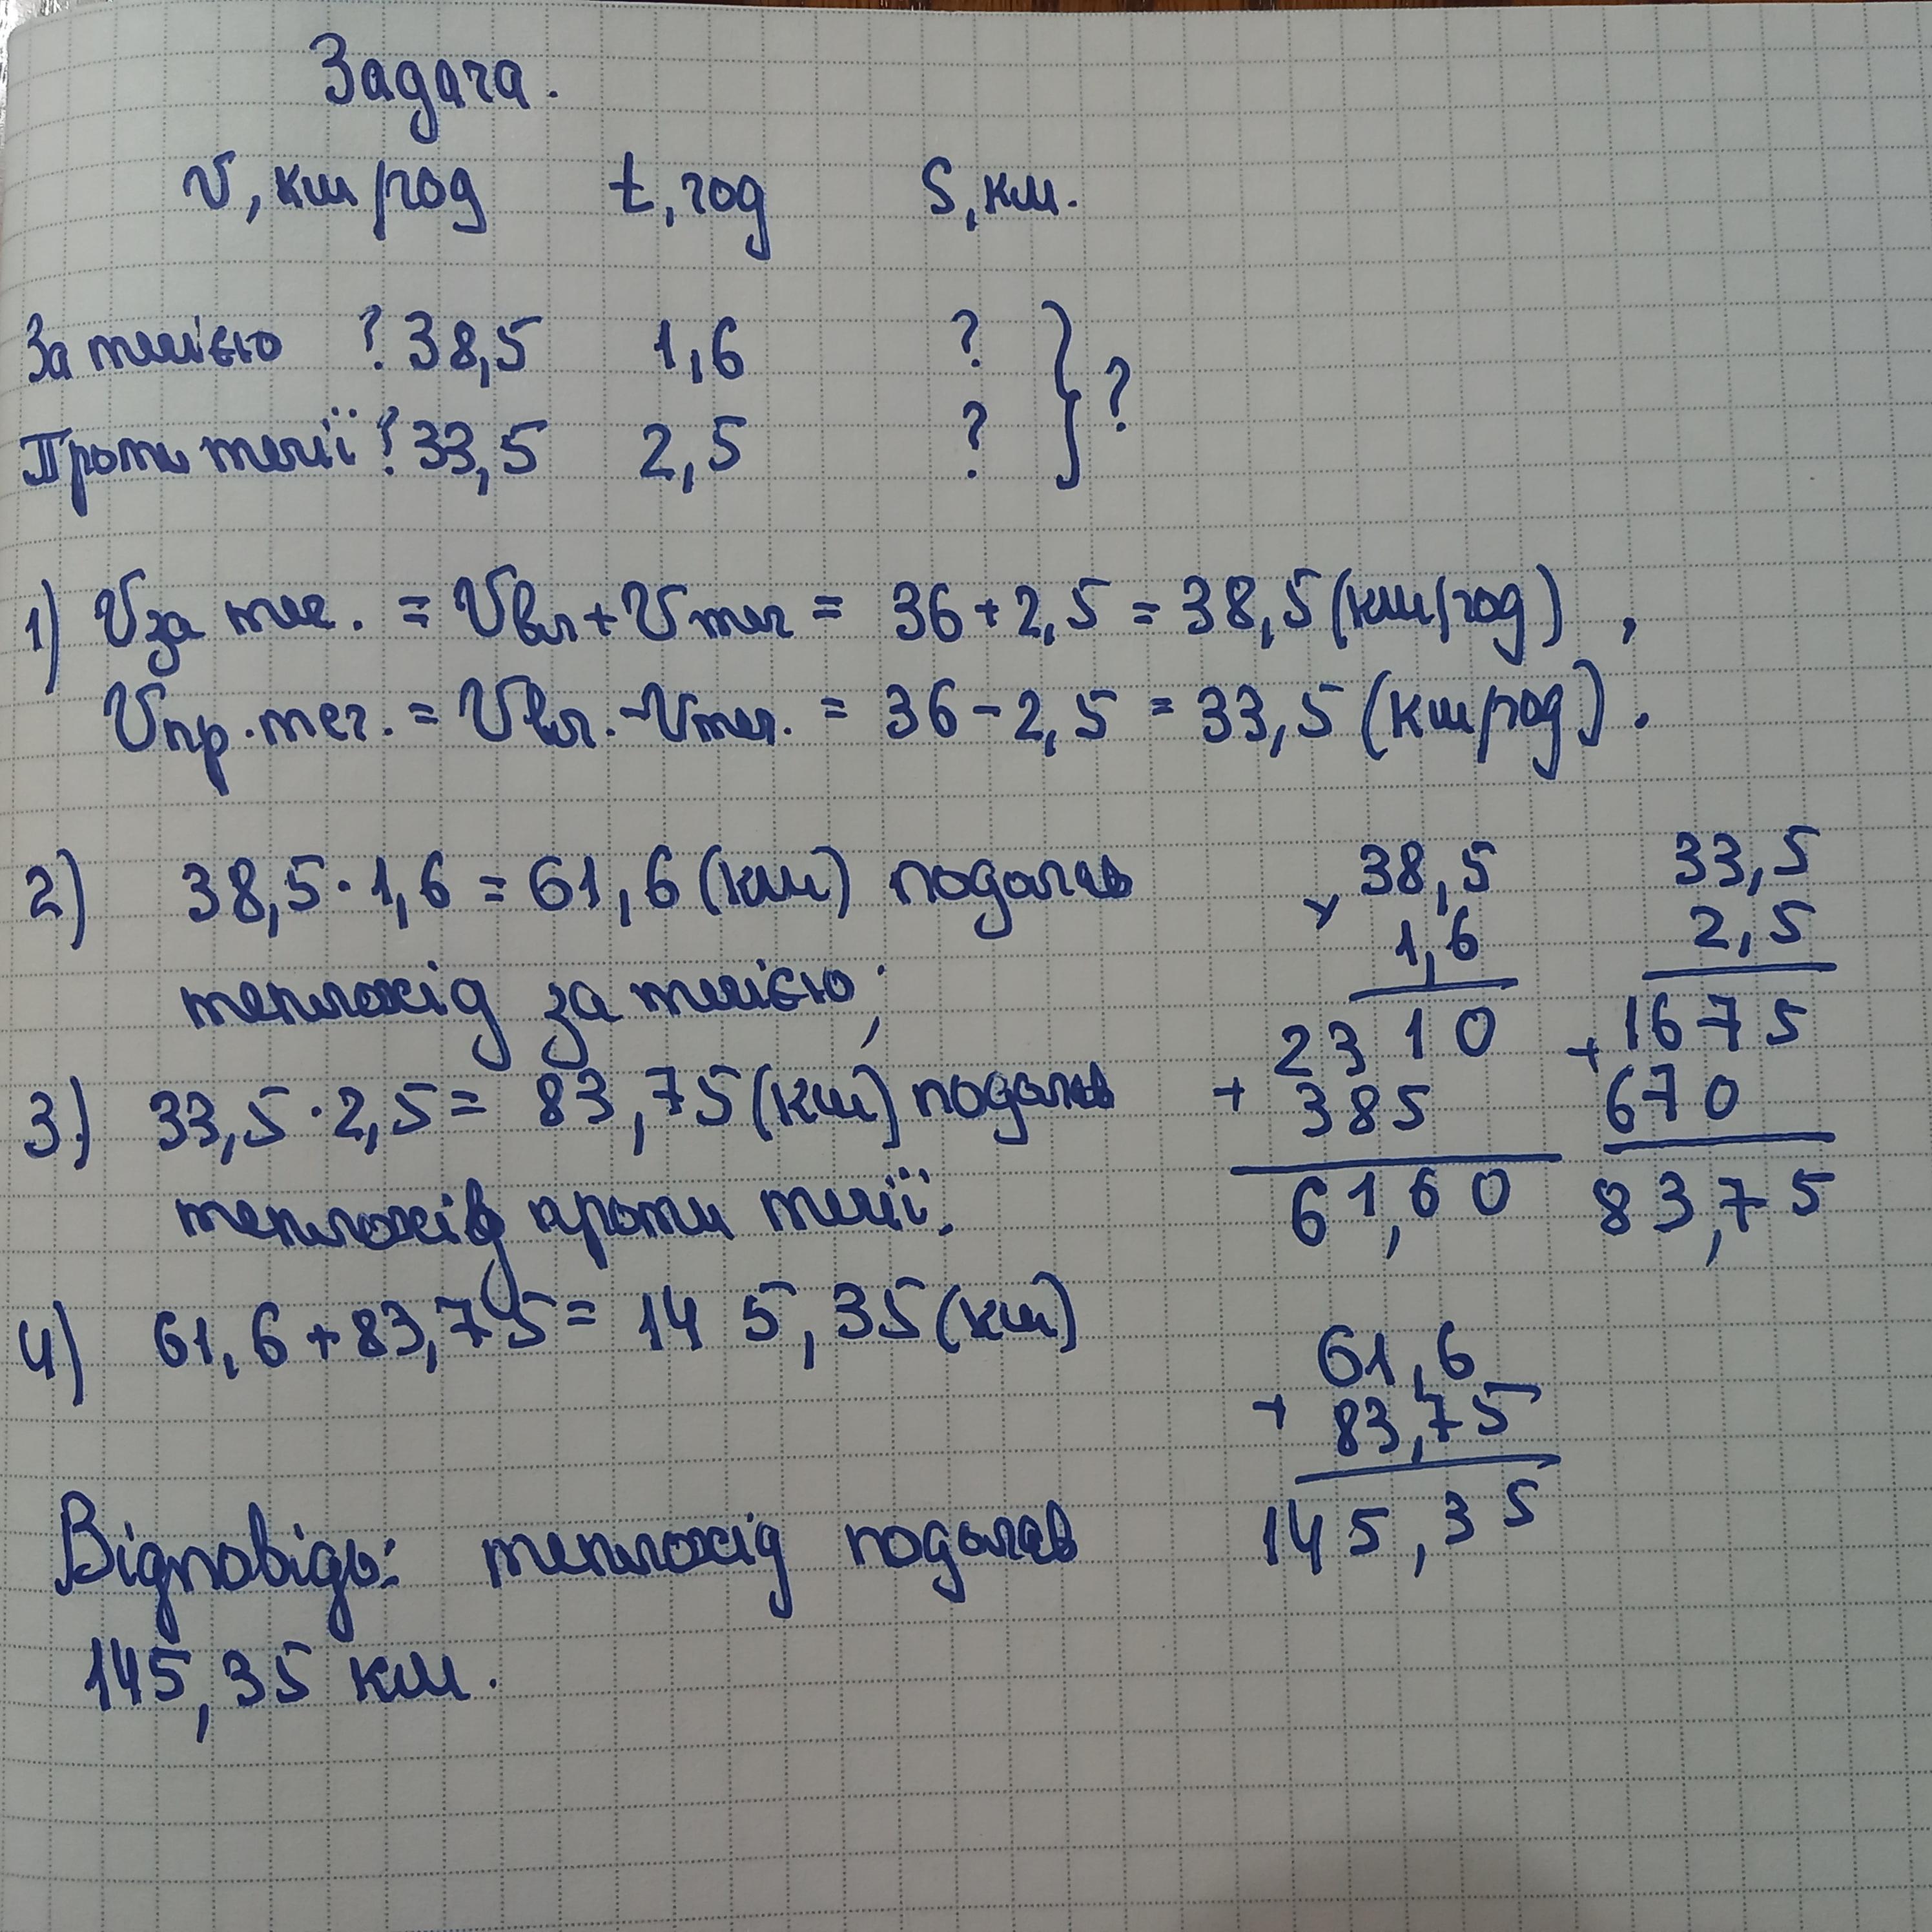 Задача.
V, км/год t, год S, км.
За течією ? 38,5 1,6 ? } ?
Проти течії ? 33,5 2,5 ?
1) Vза теч. = Vвл + Vтеч = 36 + 2,5 = 38,5 (км/год) ,
Vпр. теч. = Vвл. - Vтеч. = 36 - 2,5 = 33,5 (км/год) .
2) 38,5 · 1,6 = 61,6 (км) подолав
теплохід за течією;
3.) 33,5 · 2,5 = 83,75 (км) подолав
теплохід проти течії.
4) 61,6 + 83,75 = 145,35 (км)
Відповідь: теплохід подолав
145,35 км.
× 38,5
1,6
2310
+ 385
61,60
33,5
2,5
+ 1675
670
83,75
61,6
+ 83,75
145,35